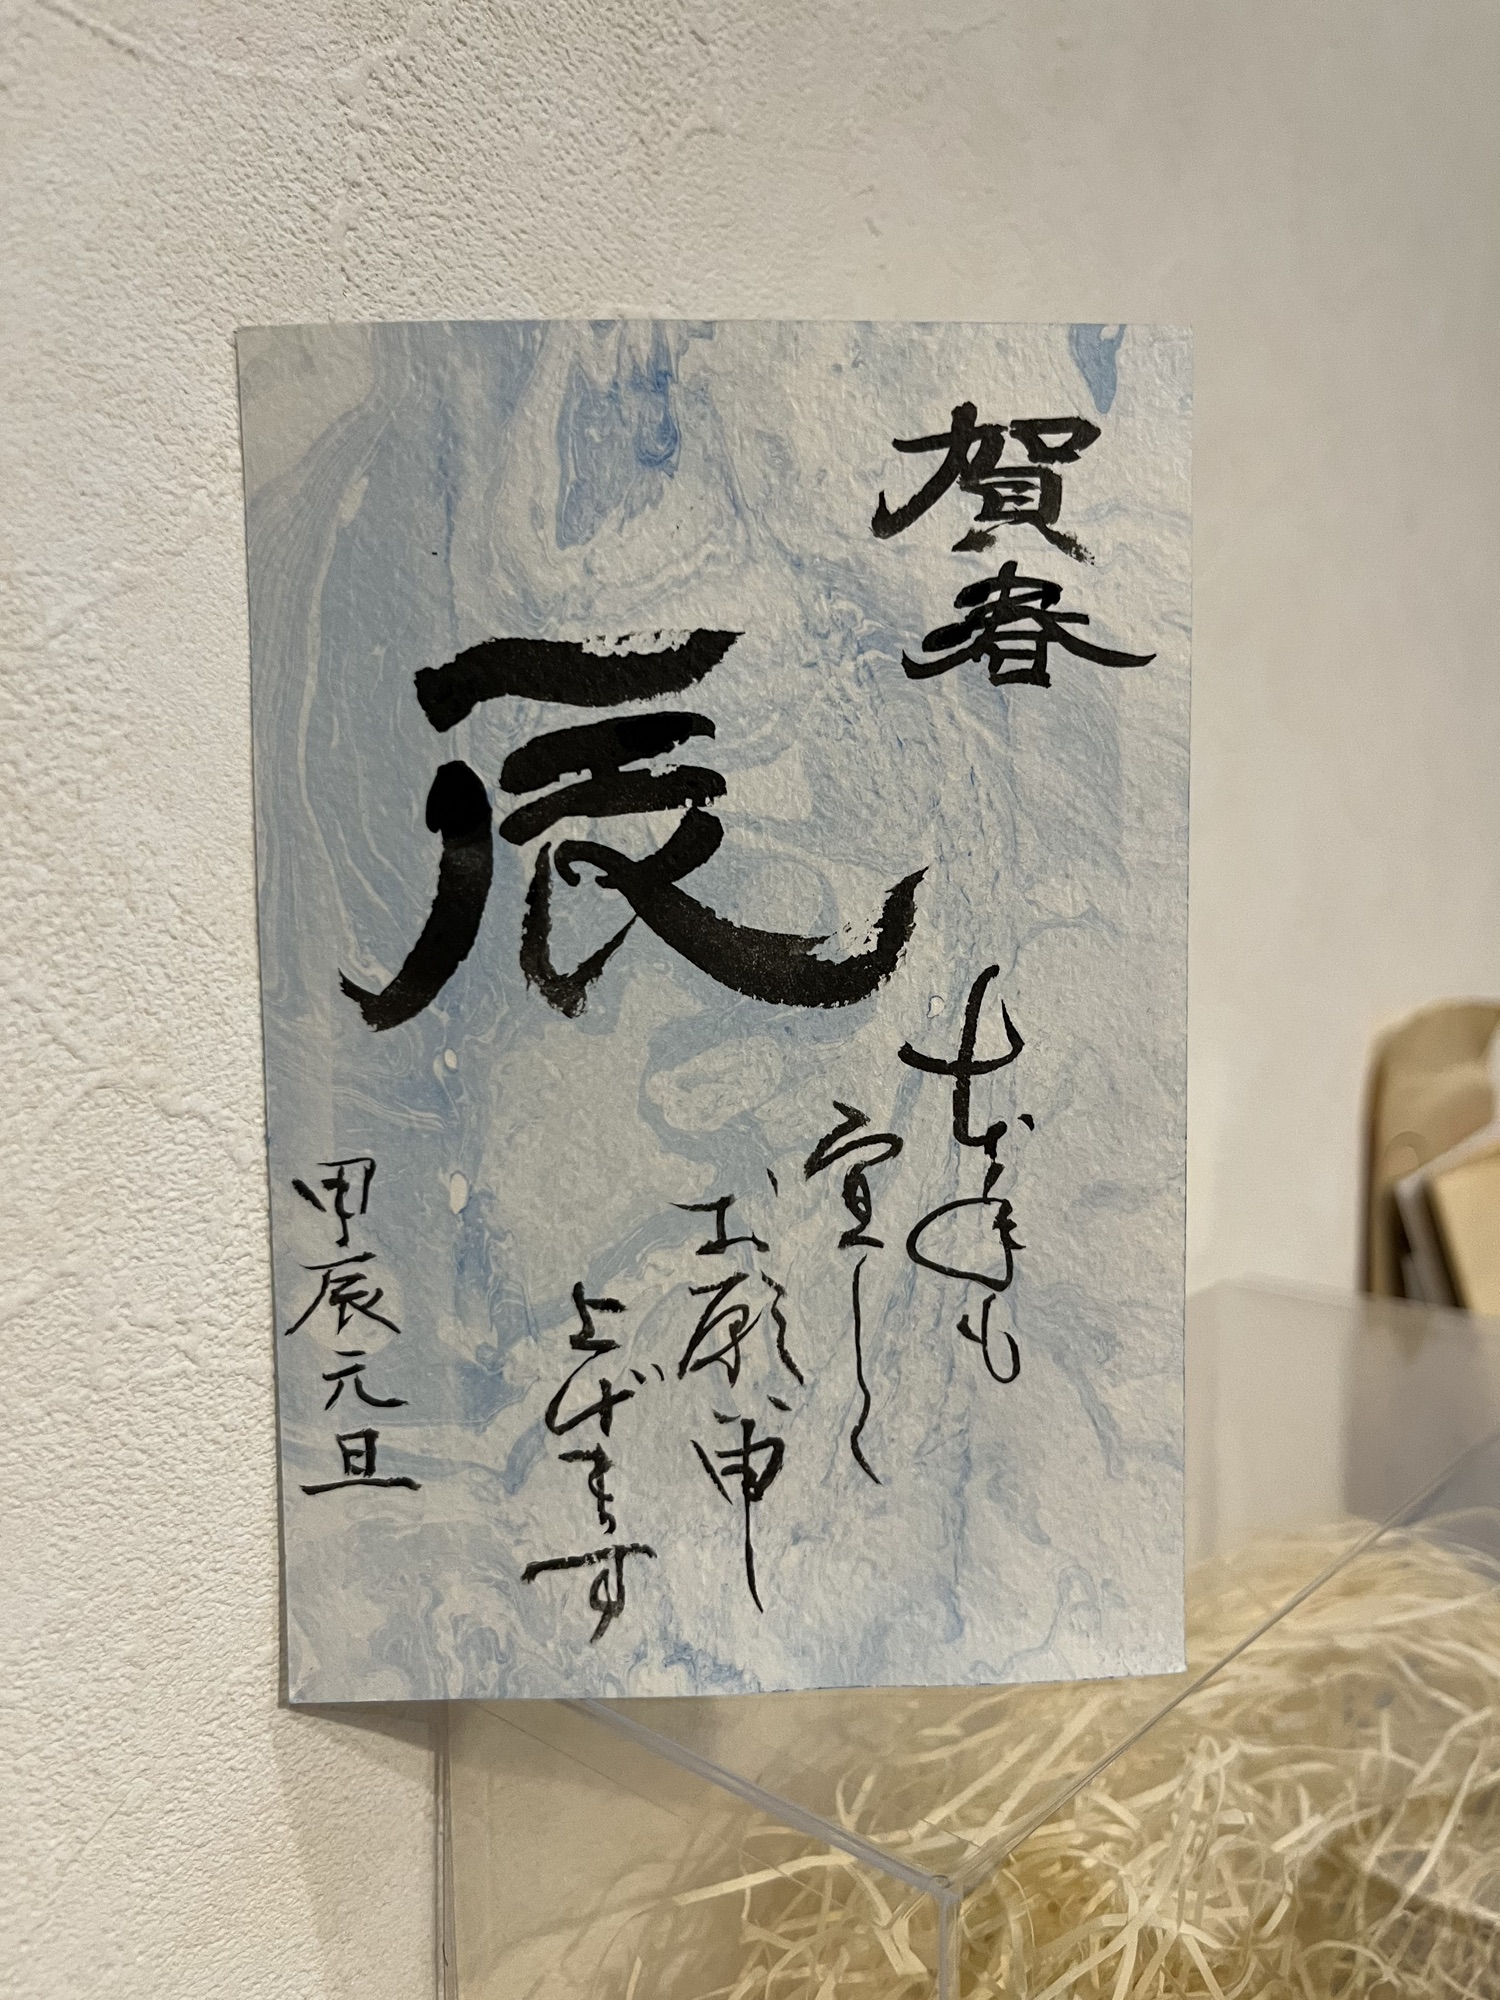 賀春
辰
本年も
宜しく
お願い申
上げます
甲辰元旦